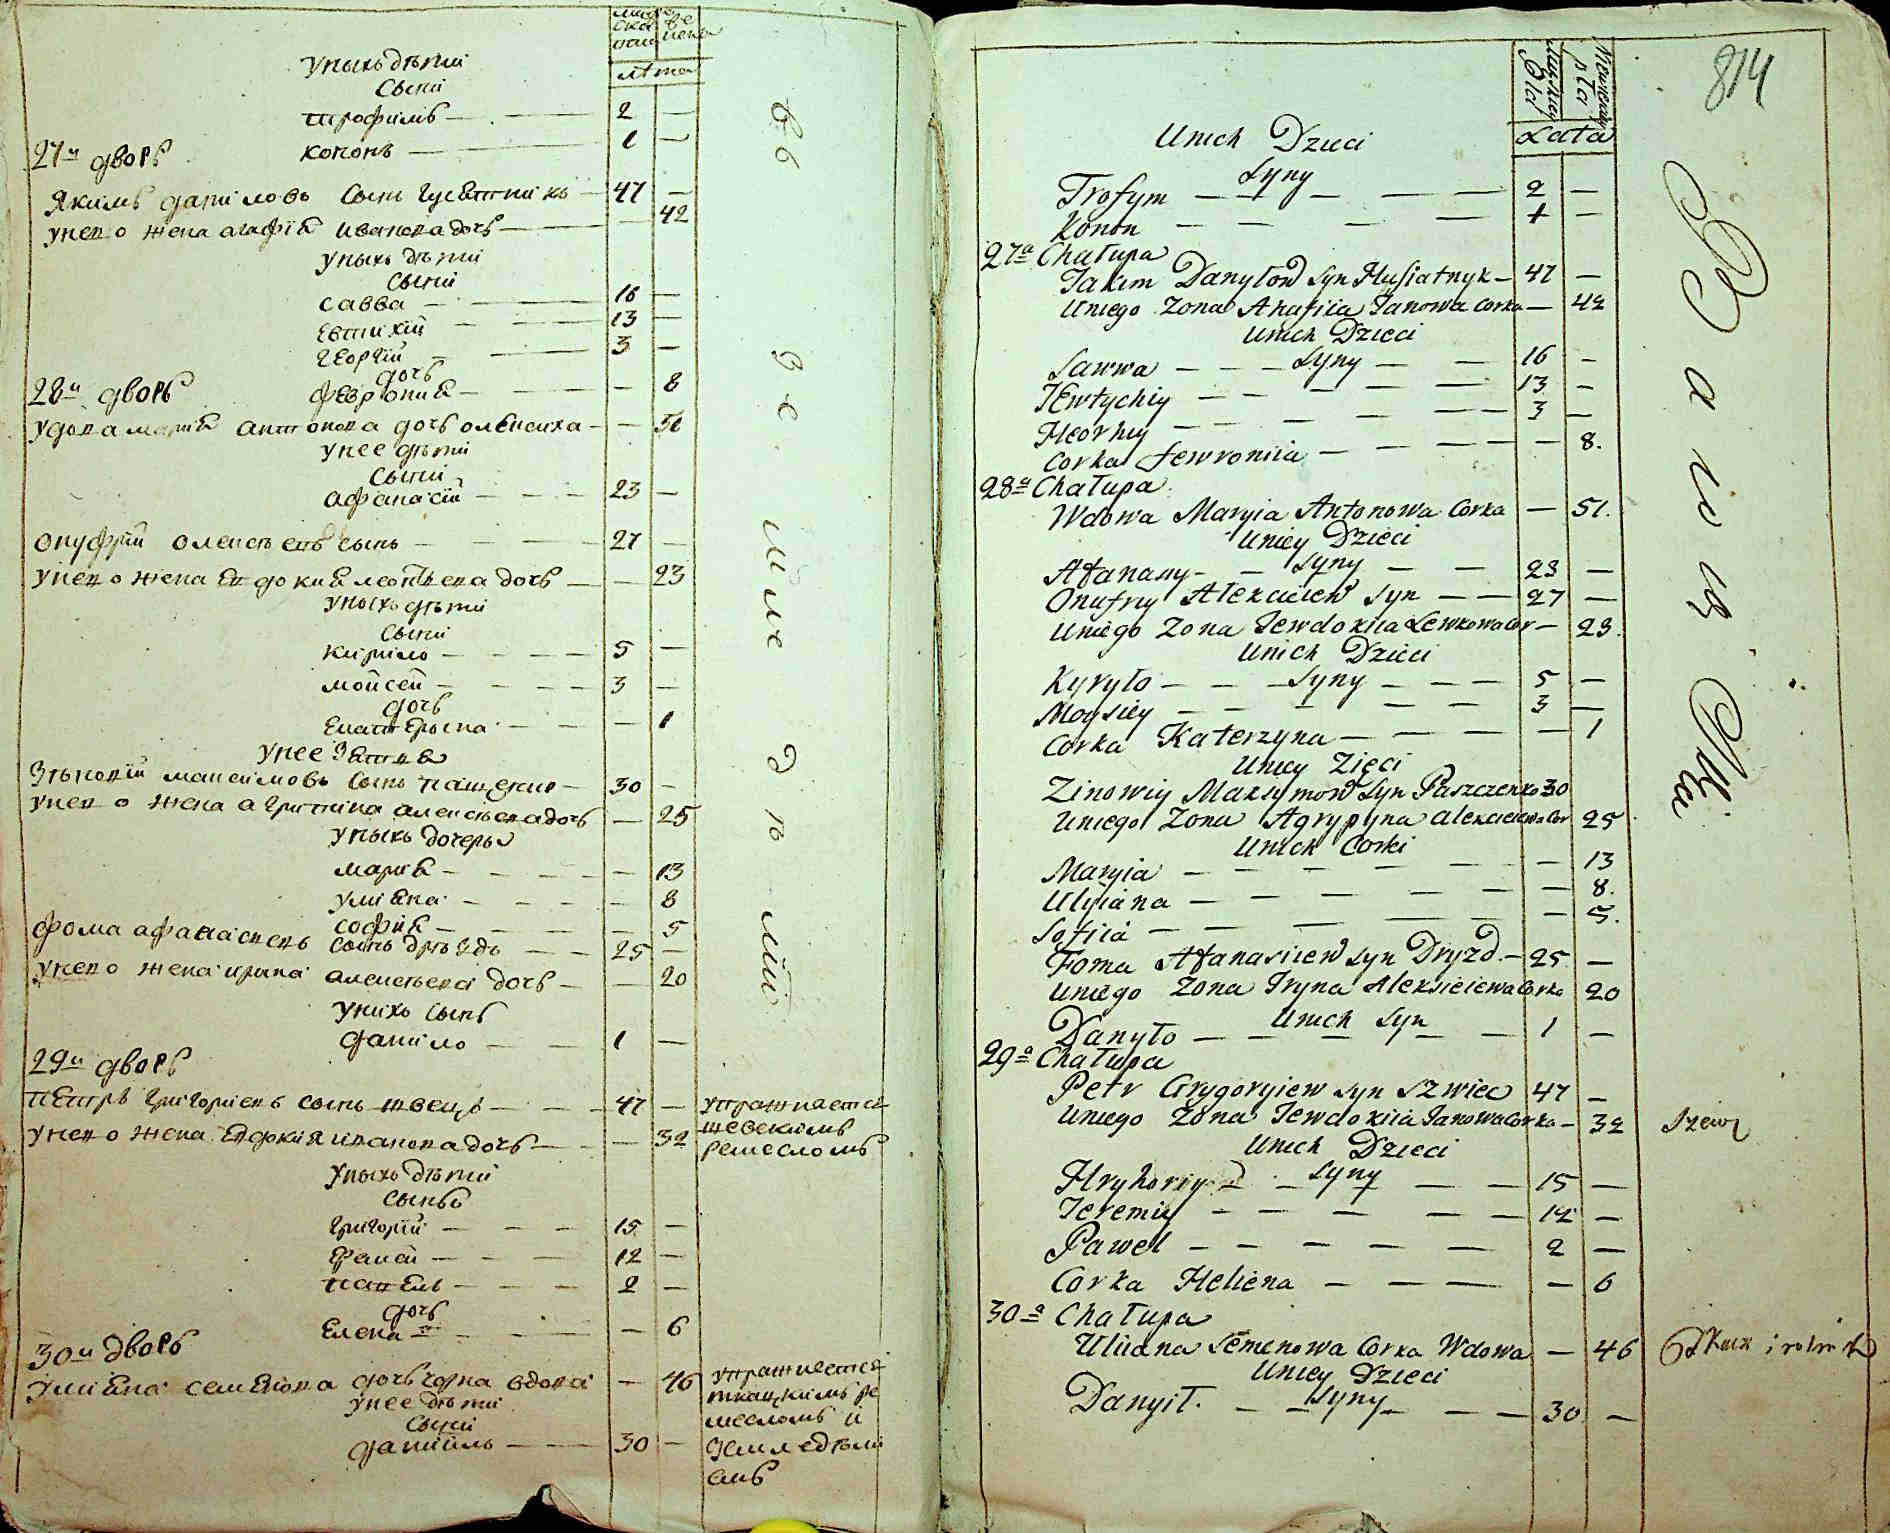 лѣта
Унихъ дѣти
Сыни
трофимъ — 2 —
кононъ — 1 —
27й дворъ
Якимъ даниловъ сынъ гусятникъ — 47 —
унего жена агафія иванова дочь — 42
унихъ дѣти
Сыни
савва — 16 —
евтихій — 13 —
георгій — 3 —
дочь
феврония — 8
28й дворъ
удова марія антонова дочь — 51
унее дѣти
Сыни
афанасій — 23 —
онуфрій алексѣевъ сынъ — 27 —
унего жена евдокия леонтиева дочь — 23
унихъ дѣти
Сыни
кирило — 5 —
мойсей — 3 —
дочь
екатерына — 1
унее зятья
зѣновій максимовъ сынъ пащенко — 30 —
унего жена агрипина алексѣева дочь — 25
унихъ дочеры
мария — 13
улияна — 8
софия — 5
фома афанасиевъ сынъ дрѣздъ — 25 —
унего жена ирина алексѣева дочь — 20
унихъ сынъ
данило — 1 —
29й дворъ
петръ григориевъ сынъ швецъ — 47 — упражняется
унего жена евдокия иванова дочь — 32 шевскимъ
ремесломъ
унихъ дѣти
сынъ
григорій — 15 —
еремѣй — 12 —
павелъ — 2 —
дочь
Елена — 6
30й дворъ
улияна семенова дочь вдова — 46 упражняется
унее дѣти ткацкимъ ре
Сыни месломъ и
даниилъ — 30 — земледѣли
емъ
въ земле
814
Lata
Unich Dzieci
Syny
Trofym — 2 —
Konon — 1 —
27a Chałupa
Jakim Danyłow Syn Husiatnyk — 47 —
Uniego Zona Ahafiia Janowa Corka — 42
Unich Dzieci
Syny
Sawwa — 16 —
Jewtychiy — 13 —
Heorhiy — 3 —
Corka Fewroniia — 8.
28a Chałupa
Wdowa Maryia Antonowa Corka — 51.
Uniey Dzieci
Syny
Afanasy — 23 —
Onufry Alexieiew Syn — 27 —
Uniego Zona Jewdokiia Lewkowa Cor — 23
Unich Dzieci
Syny
Kyryło — 5 —
Moysiey — 3 —
Corka Katerzyna — 1
Uniey Zięci
Zinowiy Maksymow Syn Paszczenko 30
Uniego Zona Agrypyna Alexieiewa Cor 25
Unich Corki
Maryia — 13
Ulyiana — 8.
Sofiia — 5.
Foma Afanasiiew Syn Dryzd — 25 —
Uniego Zona Iryna Aleksieiewa Corka 20
Unich Syn
Danyło — 1 —
29a Chałupa
Petr Grygoryiew Syn Szwiec 47 —
Uniego Zona Jewdokiia Janowa Corka — 32 Szewc
Unich Dzieci
Syny
Hryhoriy — 15 —
Jeremiy — 12 —
Paweł — 2 —
Corka Heliena — 6
30a Chałupa
Uliana Semenowa Corka Wdowa — 46 Tkacz i rolnik
Uniey Dzieci
Syny
Danyił. — 30 —